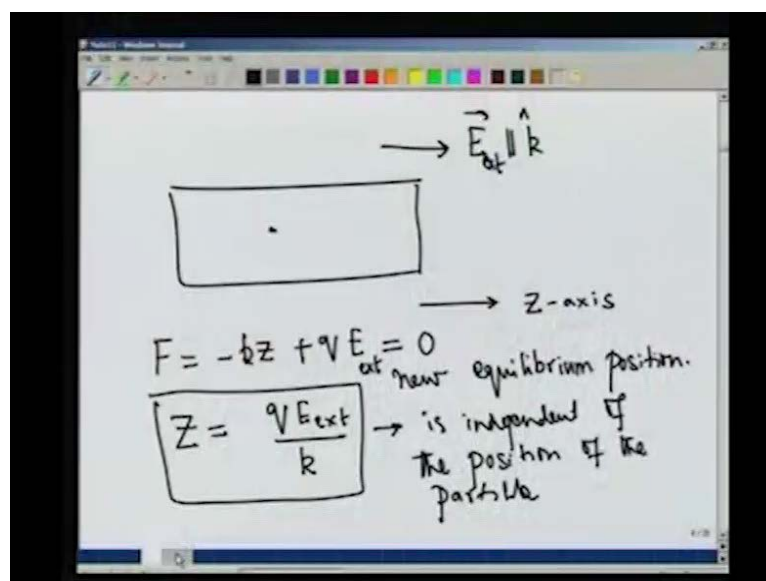 E⃗_ext ∥ k̂
z-axis
F = -kz + qE_ext = 0
new equilibrium position.
Z = qE_ext / k → is indgendent of
the position of the
partible